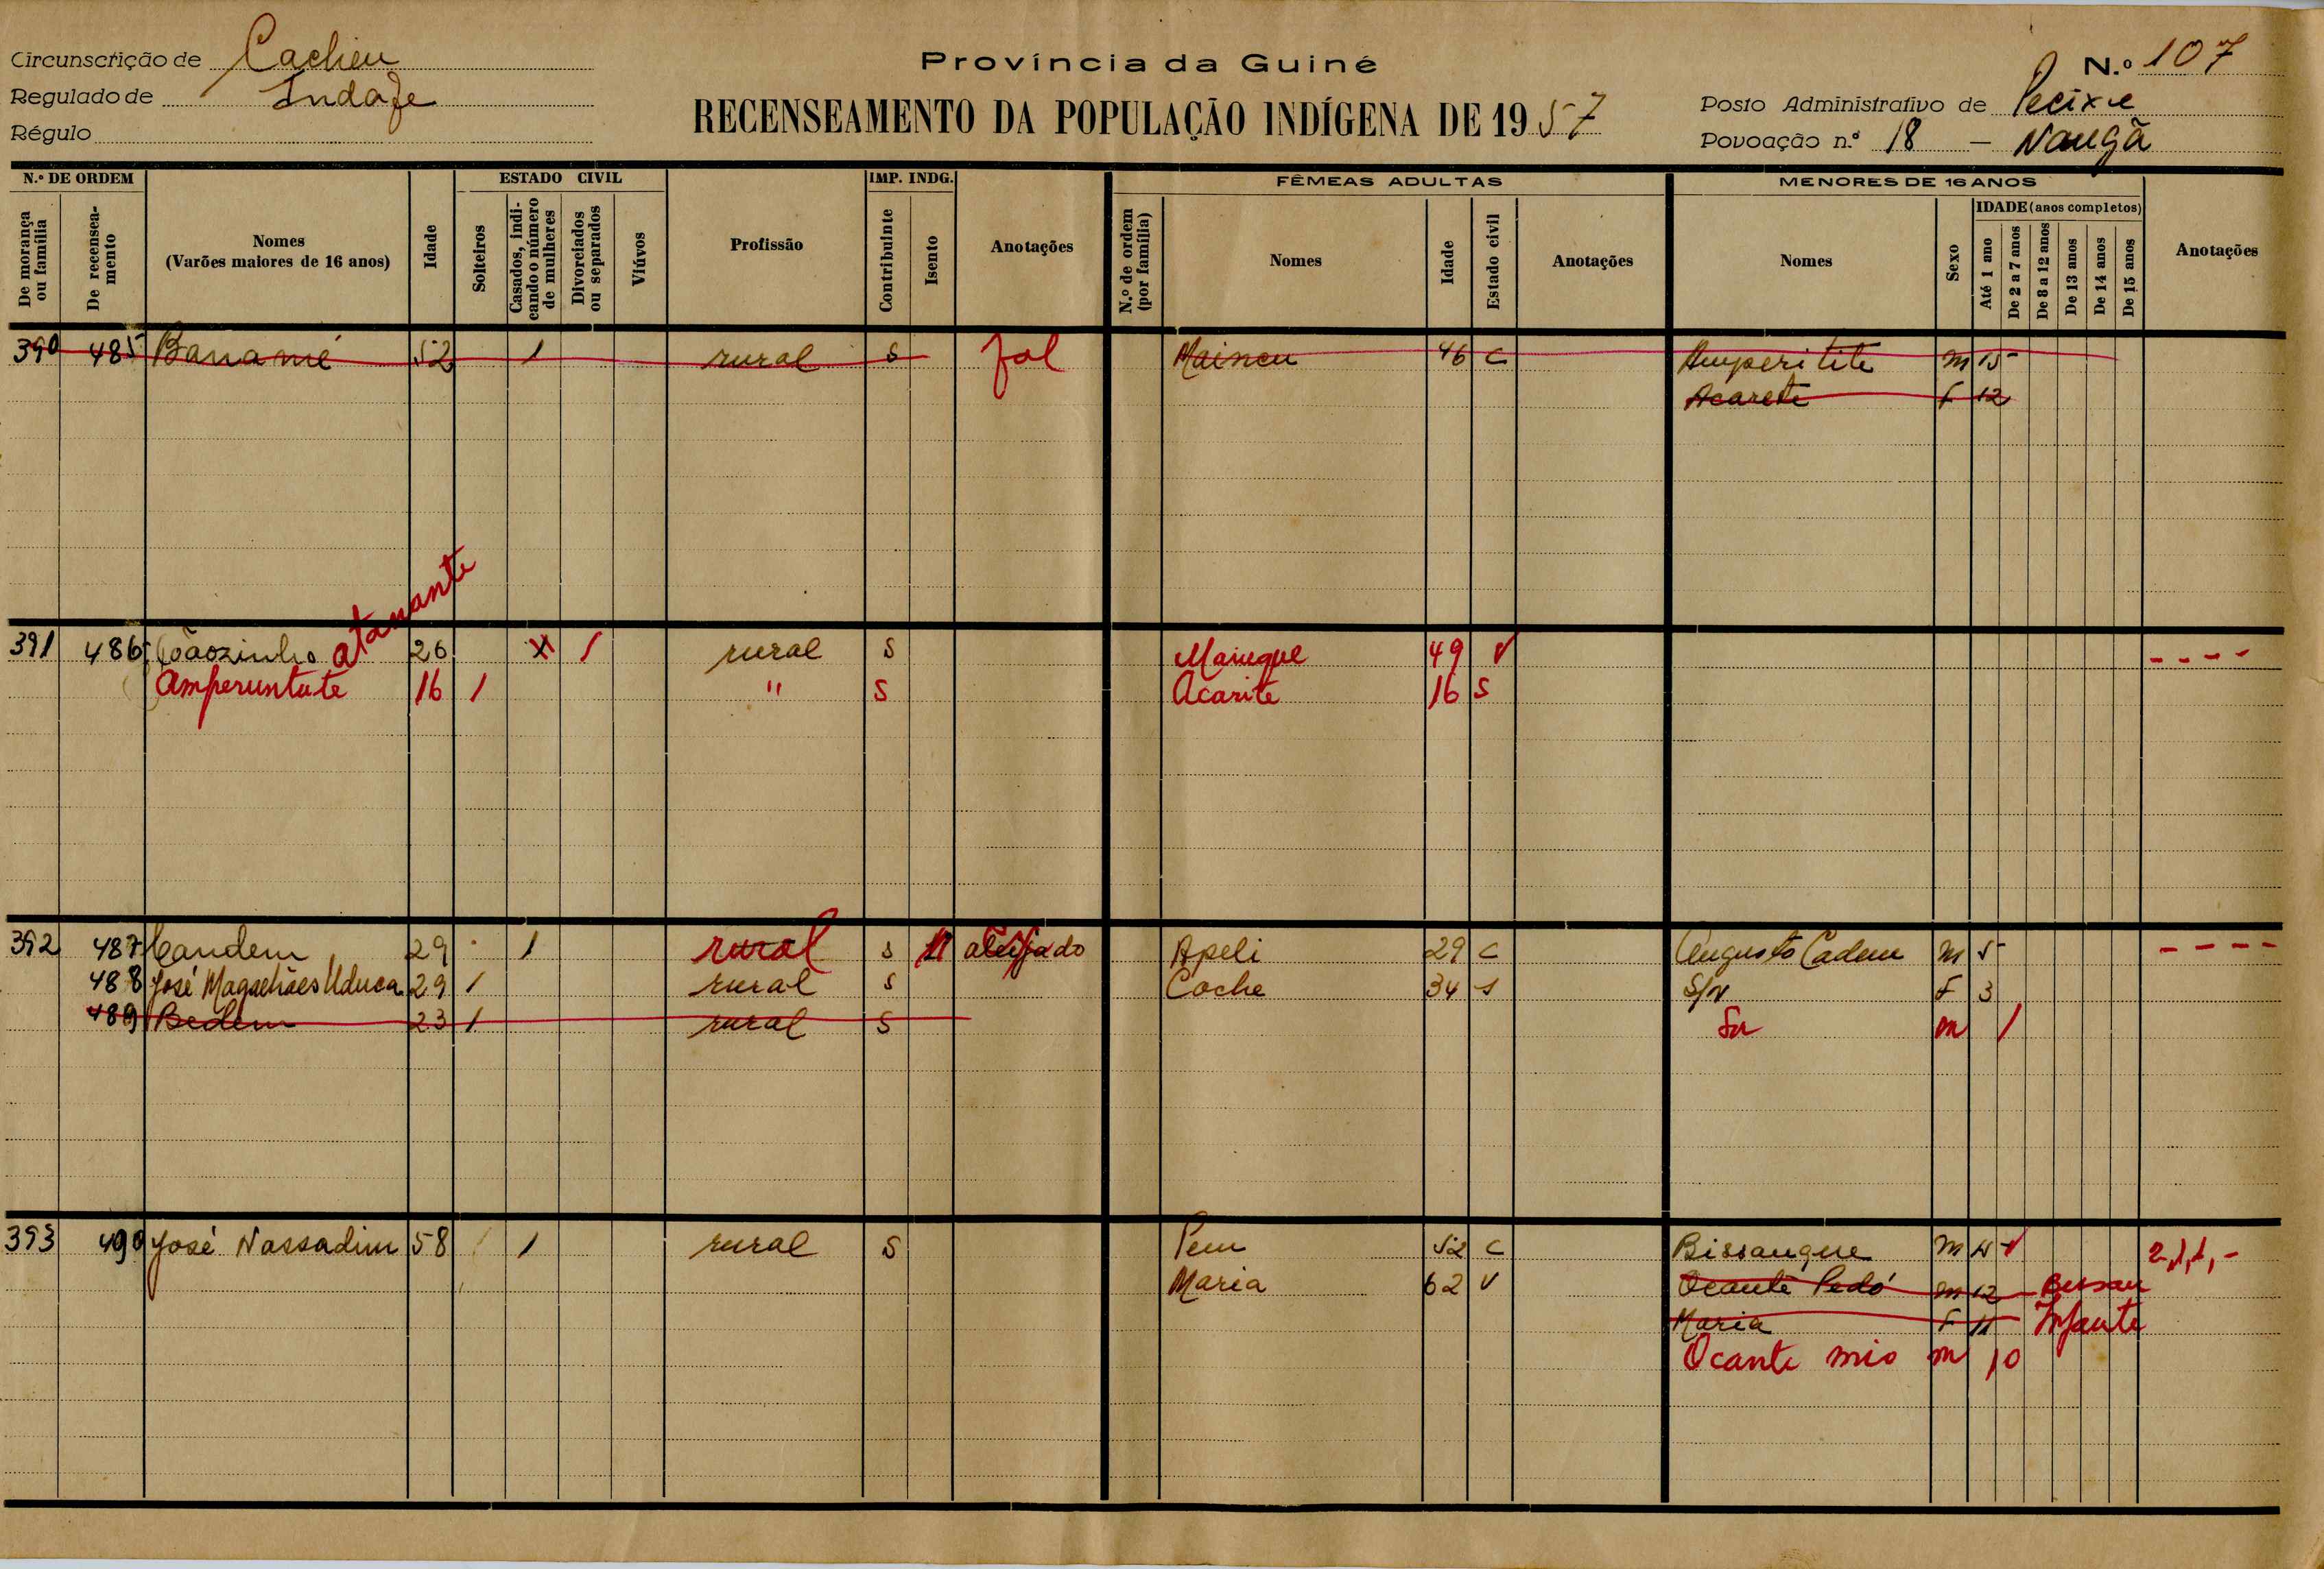 Província da Guiné
Circunscrição de Cacheu
N.º 107
Regulado de Indafe
RECENSEAMENTO DA POPULAÇÃO INDÍGENA DE 1957
Posto Administrativo de Pecixe
Régulo
Povoação n.º 18 - Naugã
N.º DE ORDEM
ESTADO CIVIL
IMP. INDG.
FÊMEAS ADULTAS
MENORES DE 16 ANOS
De morança ou família
De recenseamento
Nomes
(Varões maiores de 16 anos)
Idade
Solteiros
Casados, indicando o número de mulheres
Divorciados ou separados
Viúvos
Profissão
Contribuinte
Isento
Anotações
N.º de ordem (por família)
Nomes
Idade
Estado civil
Anotações
Nomes
Sexo
IDADE (anos completos)
Até 1 ano
De 2 a 7 anos
De 8 a 12 anos
De 13 anos
De 14 anos
De 15 anos
Anotações
390 485 Banamé 52 1 rural s fal Maincu 46 c Amperitite m 15
Acarete F 12
atanante
391 486 Joãozinho 26 X / rural s 49 V - - - -
Amperuntute 16 / " s Acarite 16 s
392 487 Candem 29 1 rural s aleijado Apeli 29 c Augusto Cadem m 5 - - - -
488 José Magalhães Uduca 29 / rural s Coche 34 s S/N F 3
489 Bedem 23 / rural s Sn m /
393 490 José Nassadim 58 1 rural s Pem 52 c Bissangue m 2,1,1,-
Maria 62 v Ocante Pedó m 12 Bissau
Maria F 11 Infante
Ocante mio m 10